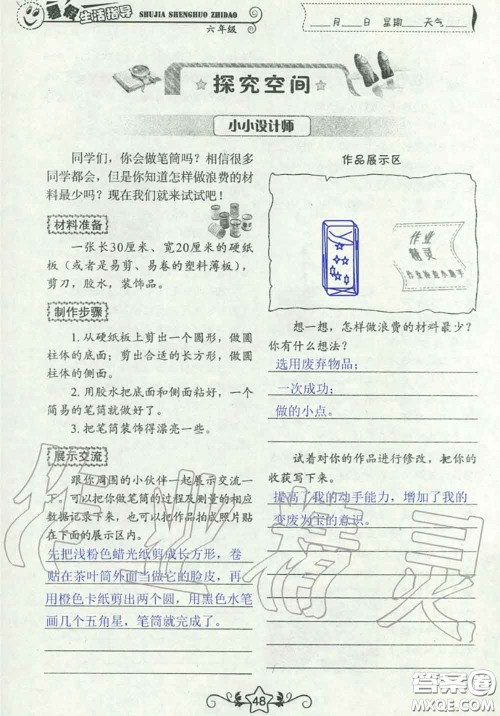 暑假生活指导
SHUJIA SHENGHUO ZHIDAO
六年级
月 日 星期 天气
探究空间
小小设计师
同学们，你会做笔筒吗？相信很多
同学都会，但是你知道怎样做浪费的材
料最少吗？现在我们就来试试吧！
材料准备
一张长30厘米、宽20厘米的硬纸
板（或者是易剪、易卷的塑料薄板），
剪刀，胶水，装饰品。
制作步骤
1. 从硬纸板上剪出一个圆形，做圆
柱体的底面；剪出合适的长方形，做圆
柱体的侧面。
2. 用胶水把底面和侧面粘好，一个
简易的笔筒就做好了。
3. 把笔筒装饰得漂亮一些。
展示交流
跟你周围的小伙伴一起展示交流一
下，可以把你做笔筒的过程及测量的相应
数据记录下来，也可以把作品拍成照片贴
在下面的展示区内。
先把浅粉色蜡光纸剪成长方形，卷
贴在茶叶筒外面当做它的脸皮，再
用橙色卡纸剪出两个圆，用黑色水笔
画几个五角星，笔筒就完成了。
作品展示区
作业
精灵
想一想，怎样做浪费的材料最少？
你有什么想法？
选用废弃物品；
一次成功；
做的小点。
试着对你的作品进行修改，把你的
收获写下来。
提高了我的动手能力，增加了我的
变废为宝的意识。
作业精灵
48
答案圈
MXQE.COM